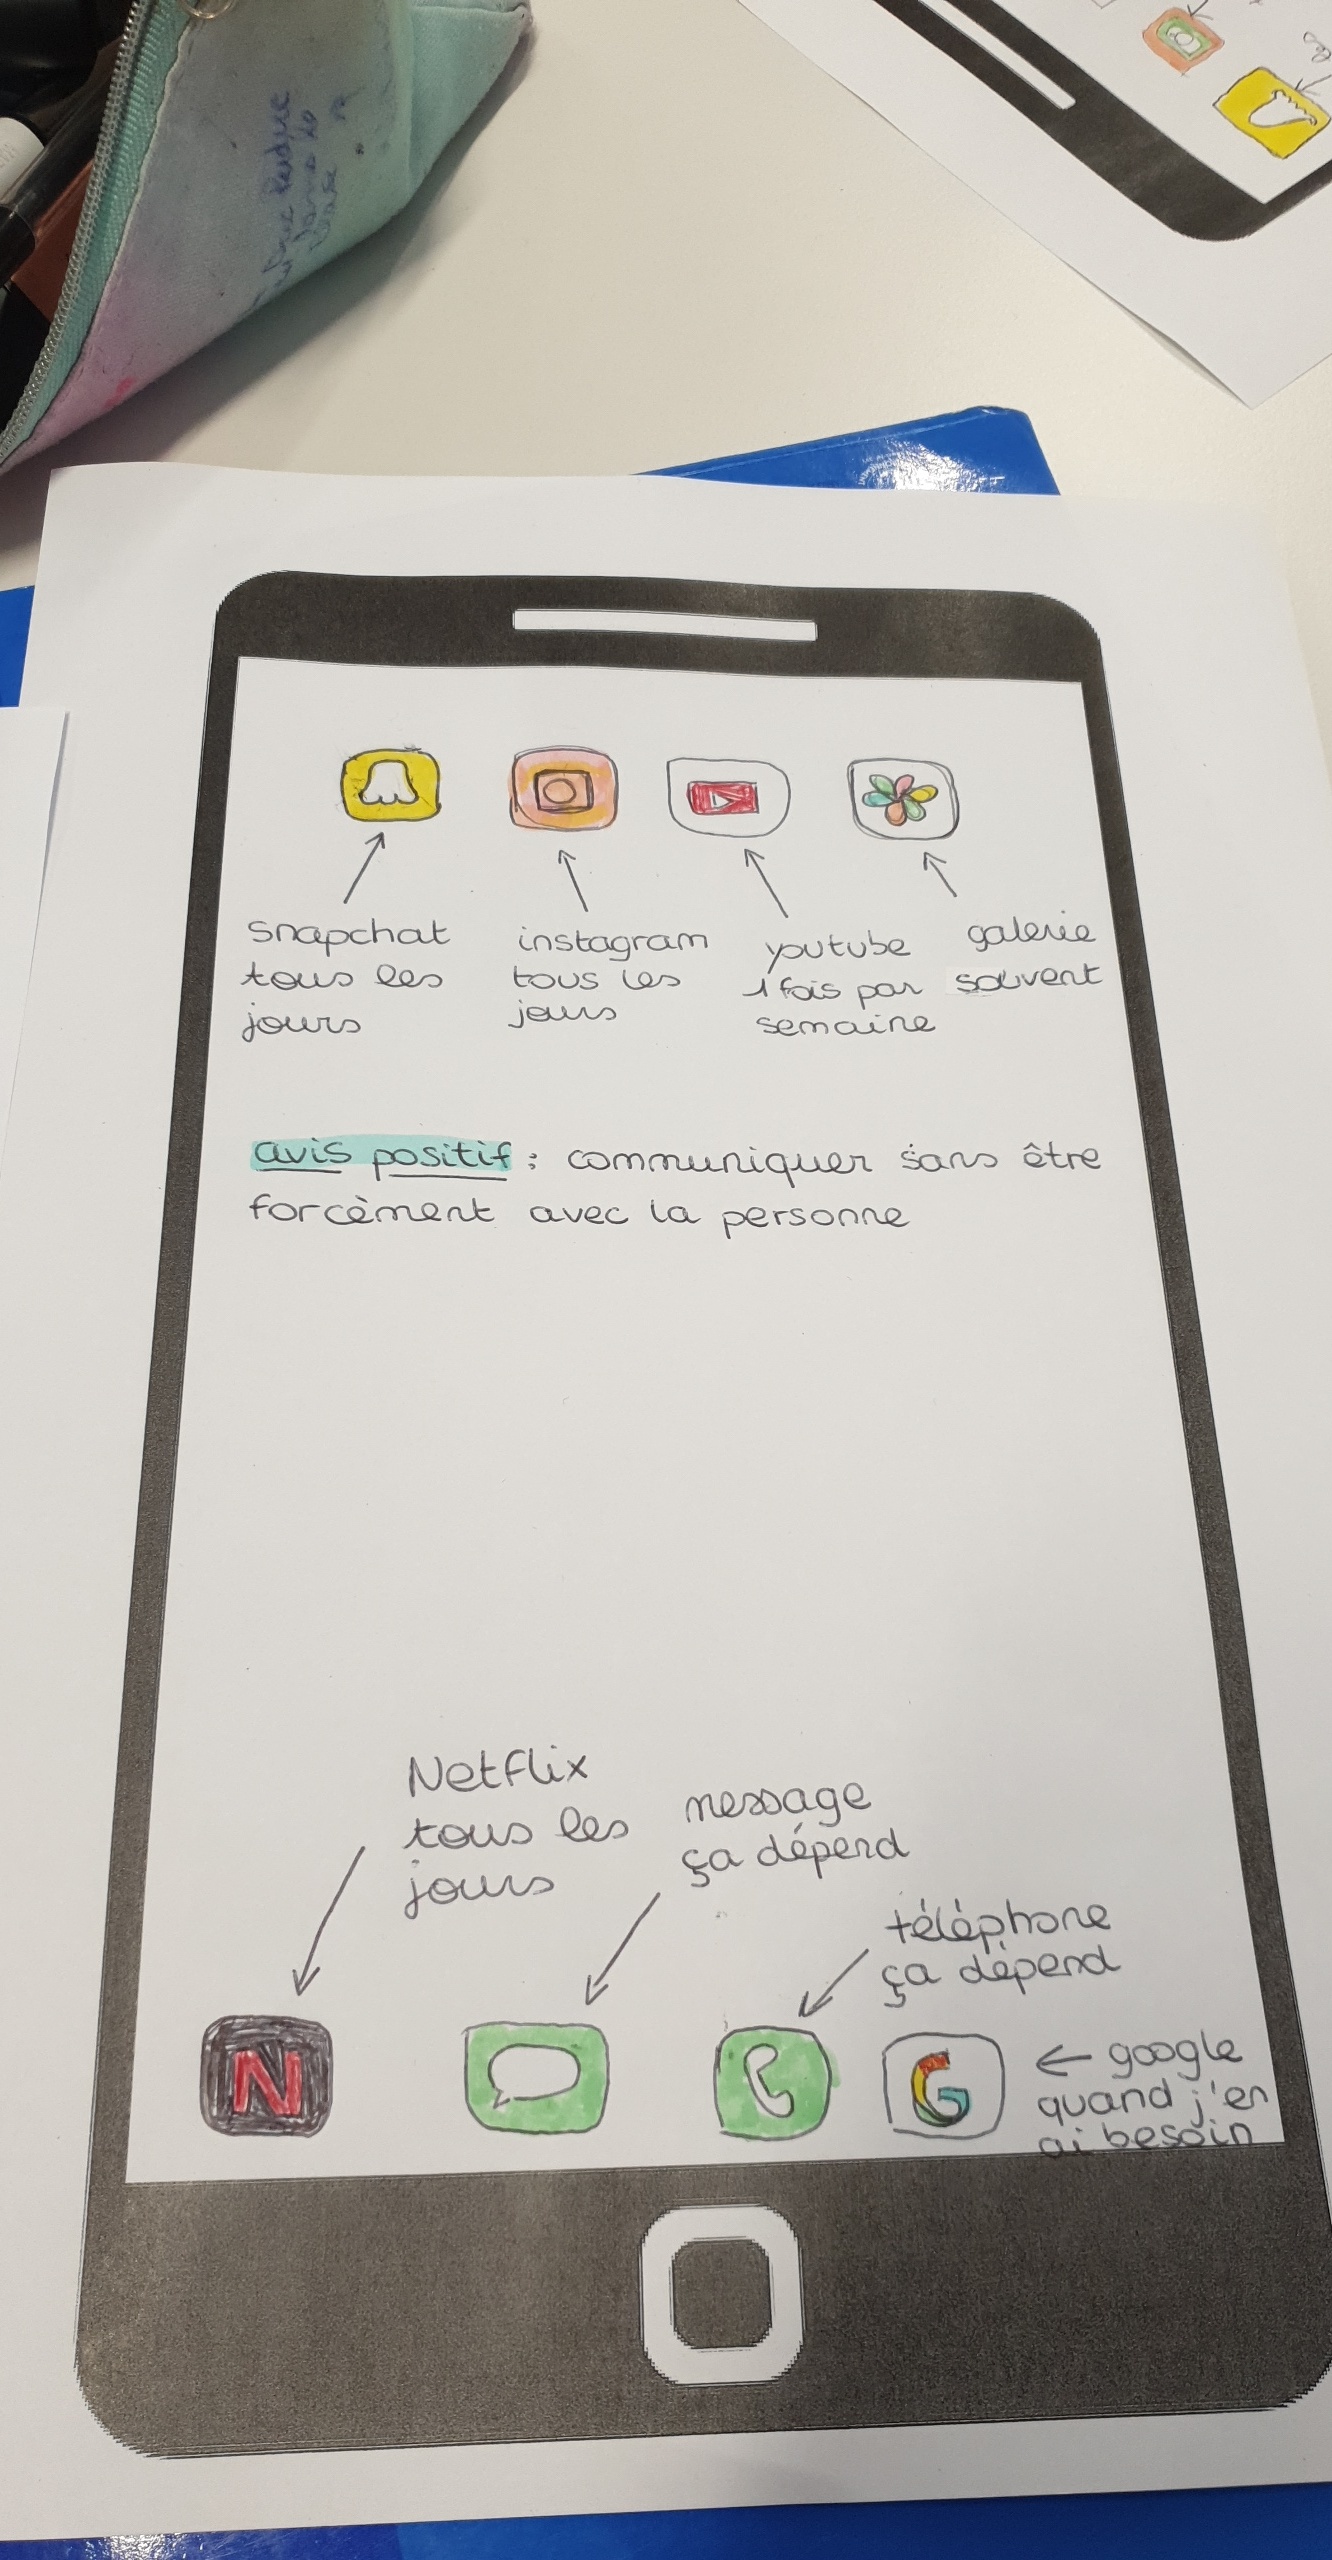 snapchat
tous les
jours
instagram
tous les
jours
youtube
1 fois par
semaine
galerie
souvent
avis positif : communiquer sans être
forcèment avec la personne
Netflix
tous les
jours
message
ça dépend
téléphone
ça dépend
N
G
← google
quand j'en
ai besoin